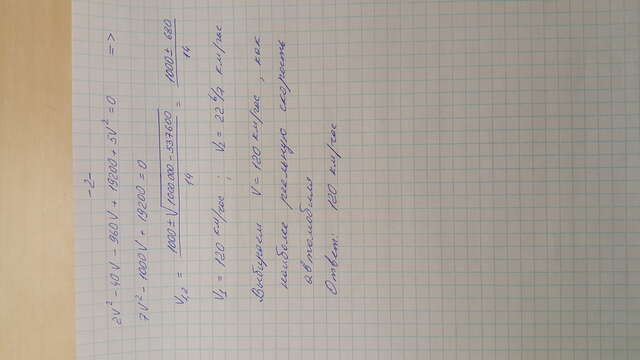 -2-
2V² - 40V - 960V + 19200 + 5V² = 0 =>
7V² - 1000V + 19200 = 0
V₁,₂ = (1000 ± √(1000000 - 537600)) / 14 = (1000 ± 680) / 14
V₁ = 120 км/час ; V₂ = 22 6/7 км/час
Выбираем V = 120 км/час, как
наиболее реальную скорость
автомобиля
Ответ: 120 км/час